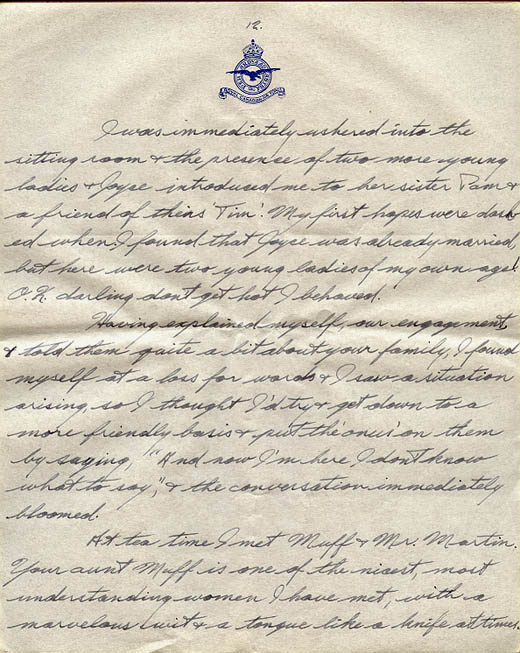 12.
ROYAL CANADIAN AIR FORCE
I was immediately ushered into the
sitting room & the presence of two more young
ladies & Joyce introdused me to her sister Pam &
a friend of theirs 'Tim'. My first hopes were dash
ed when I found that Joyce was already married,
but here were two young ladies of my own age!
O.K. darling dont get hot I behaved.
Having explained myself, our engagement
& told them quite a bit about your family, I found
myself at a loss for words & I saw a situation
arising, so I thought I'd try & get down to a
more friendly basis & put the 'onus' on them
by saying, "And now I'm here I don't know
what to say", & the conversation immediately
bloomed.
At tea time I met Muff & Mr. Martin.
Your aunt Muff is one of the nicest, most
understanding women I have met, with a
marvelous wit & a tongue like a knife at times.